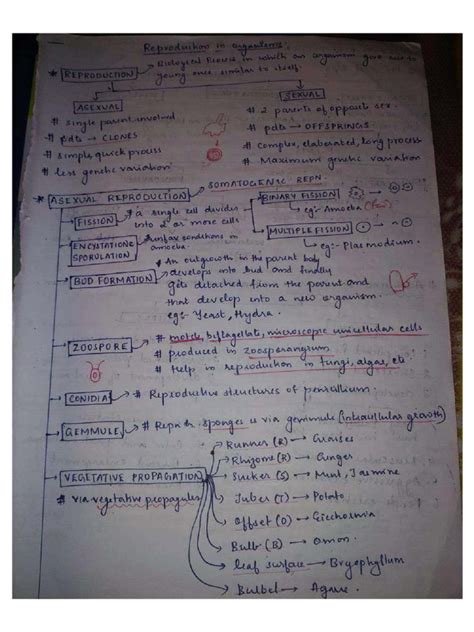 Reproduction in organisms.
* REPRODUCTION → Biological Process in which an organism give rise to
young ones similar to itself.
ASEXUAL
# single parent involved
# pdts → CLONES
# simple, quick process
# less genetic variation
SEXUAL
# 2 parents of opposite sex.
# pdts → OFFSPRINGS
# Complex, elaborated, long process
# Maximum genetic variation
* ASEXUAL REPRODUCTION → SOMATOGENIC REPN.
FISSION → # a single cell divides
into 2 or more cells
BINARY FISSION
eg:- Amoeba
MULTIPLE FISSION
eg:- Plasmodium.
ENCYSTATION &
SPORULATION → unfav conditions in
amoeba.
BUD FORMATION → # An outgrowth in the parent body
develops into bud and finally
gets detached from the parent and
that develop into a new organism.
eg:- Yeast, Hydra.
ZOOSPORE → # motile, biflagellate, microscopic unicellular cells
# produced in zoosporangium
# Help in reproduction in fungi, algae, etc
CONIDIA → # Reproductive structures of penicillium.
GEMMULE → # Repn in sponges is via gemmule (intracellular growth)
VEGETATIVE PROPAGATION
# via vegetative propagules
Runner (R) → Grasses
Rhizome (R) → Ginger
Sucker (S) → Mint, Jasmine
Tuber (T) → Potato
Offset (O) → Eichornia
Bulb (B) → Onion.
leaf surface → Bryophyllum
Bulbel → Agave.